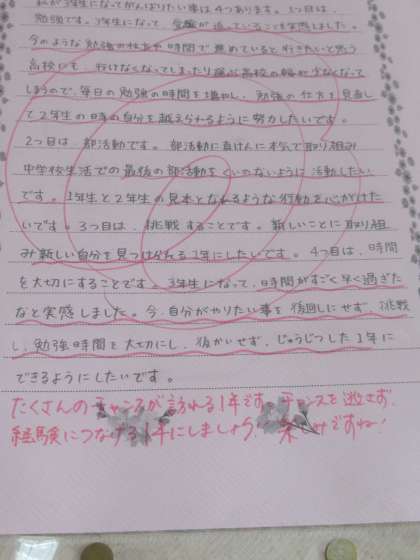 私が3年生になってがんばりたい事は4つあります。1つ目は、
勉強です。3年生になって、受験が迫っていることを実感しました。
今のような勉強の仕方や時間で進めていると行きたいと思う
高校にも、行けなくなってしまったり選ぶ高校の幅が少なくなって
しまうので、毎日の勉強の時間を増やし、勉強の仕方を見直し
て2年生の時の自分を越えられるように努力したいです。
2つ目は、部活動です。部活動に真けんに本気で取り組み
中学校生活での最後の部活動をくいのないように活動したい
です。1年生と2年生の見本となれるような行動を心がけた
いです。3つ目は、挑戦することです。新しいことに取り組
み新しい自分を見つけられる1年にしたいです。4つ目は、時間
を大切にすることです。3年生になって、日時間がすごく早く過ぎた
なと実感しました。今、自分がやりたい事を後回しにせず、挑戦
し、勉強時間を大切にし、後かいせず、じゅうじつした1年に
できるようにしたいです。
たくさんのチャンスが訪れる1年です。チャンスを逃さず、
経験につなげる1年にしましょう。楽しみですね!